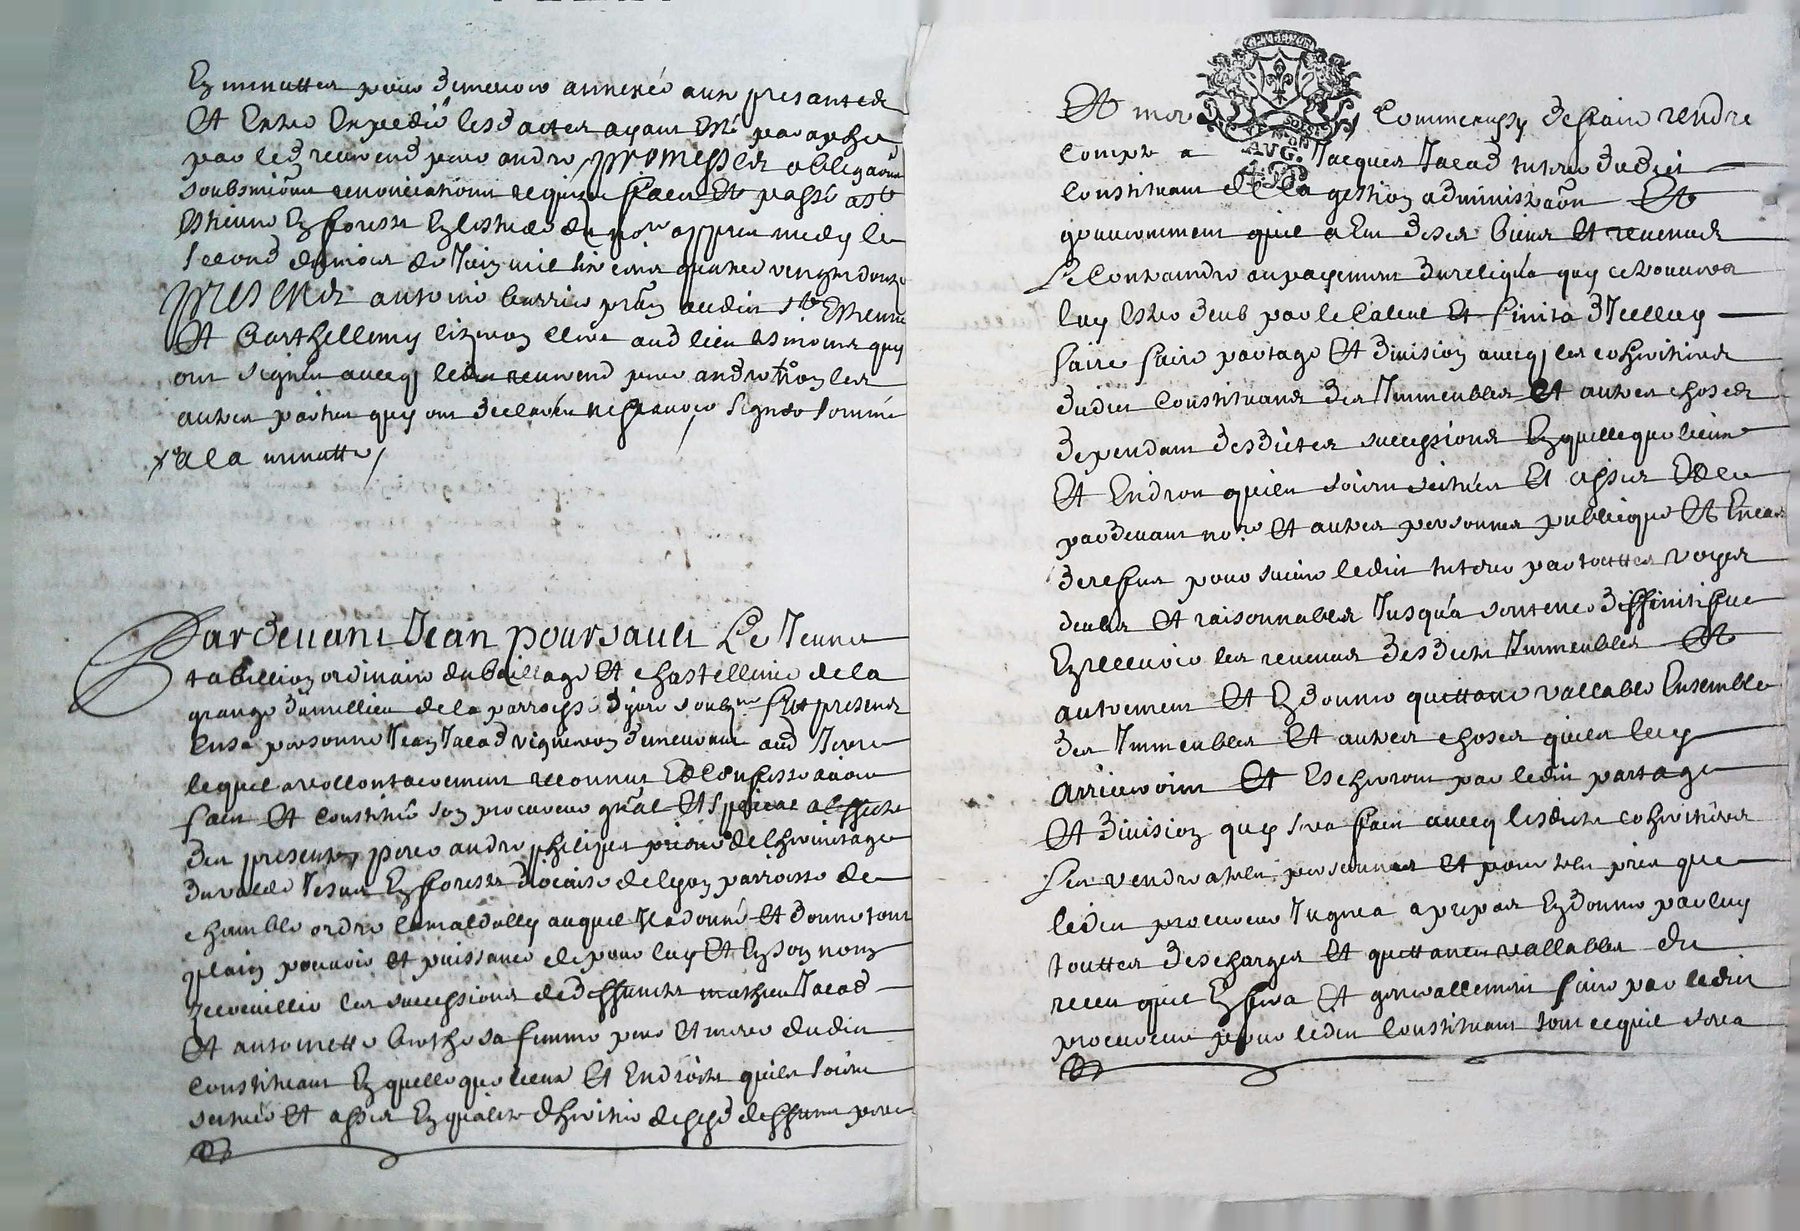 En minutte pour demeurer annexé aux presantes
Et Entre Expedié lesd actes ayant esté paraphé
par led reverend pere andre promesses obligaõns
soubsmiõns renonciations requises faict Et passé a st
Estienne En forest En l'estude du nore appres midy le
second du mois de Juin mil six cens quatre vengts douze
presents antoine pran audit st Estienne
Et Barthellemy clerc aud lieu tesmoins quy
ont signés avecq led reverend pere andre non les
autres parties quy ont declarés ne sçavoir signer sommé
a la minutte
Pardevant Jean poursault Le Jeune
tabellion ordinaire du bailliage Et chastellenie de la
grange de la parroisse soubzne fut present
En sa personne Jean Jacod vigneron demeurant aud
lequel a vollontairement reconnu Et confessé avoir
faict Et constitué son procureur gñal Et special a l'effect
des presentes pere andre philipes prieur de l'hermitage
du val de Jesus En forest diocaise de lyon parroisse de
chamble ordre Camaldolly auquel Il a donné Et donne tout
plain pouvoir et puissance de pour luy Et En son nom
recueillir les successions de deffuncts mathieu Jacod
Et antoinette sa femme pere Et mere dudit
constituant En quelle que lieux Et Endroits quils soient
scitués Et assis En qualité d'heritier desd deffunt pere
Et mere Commeussy de faire rendre
compte a Jacques Jacod tuteur dudit
constituant de la gestion administraõn Et
gouvernement quil a Eu de ses biens Et revenus
Le Contraindre au payement du reliqua quy ce trouvera
luy Estre deub par le calcul Et finito d'Icelluy
faire faire partage Et division avecq les coheritiers
dudit Constituant des Immeubles Et autres choses
dependant desdittes successions En quelle que lieux
Et Endroit quils soient scitués Et assis Et ce
pardevant nore Et autres personnes publicque Et En cas
de reffus poursuivre ledit tuteur par touttes voyes
deubs Et raisonnables Jusqu'a sentence diffinitifve
En recevoir les revenus desdicts Immeubles Et
autrement Et En donner quittance vallable Ensemble
des Immeubles Et autres choses quils luy
arriveront Et Escheront par ledit partage
Et division quy sera faict avecq lesdicts coheritiers
Les vendre a telles personnes Et pour tels prix que
ledit procureur Jugera a propos En donner par luy
touttes descharges Et quittances vallables du
receu quil En fera Et generallement faire par ledit
procureur pour ledit Constituant tout ce quil sera